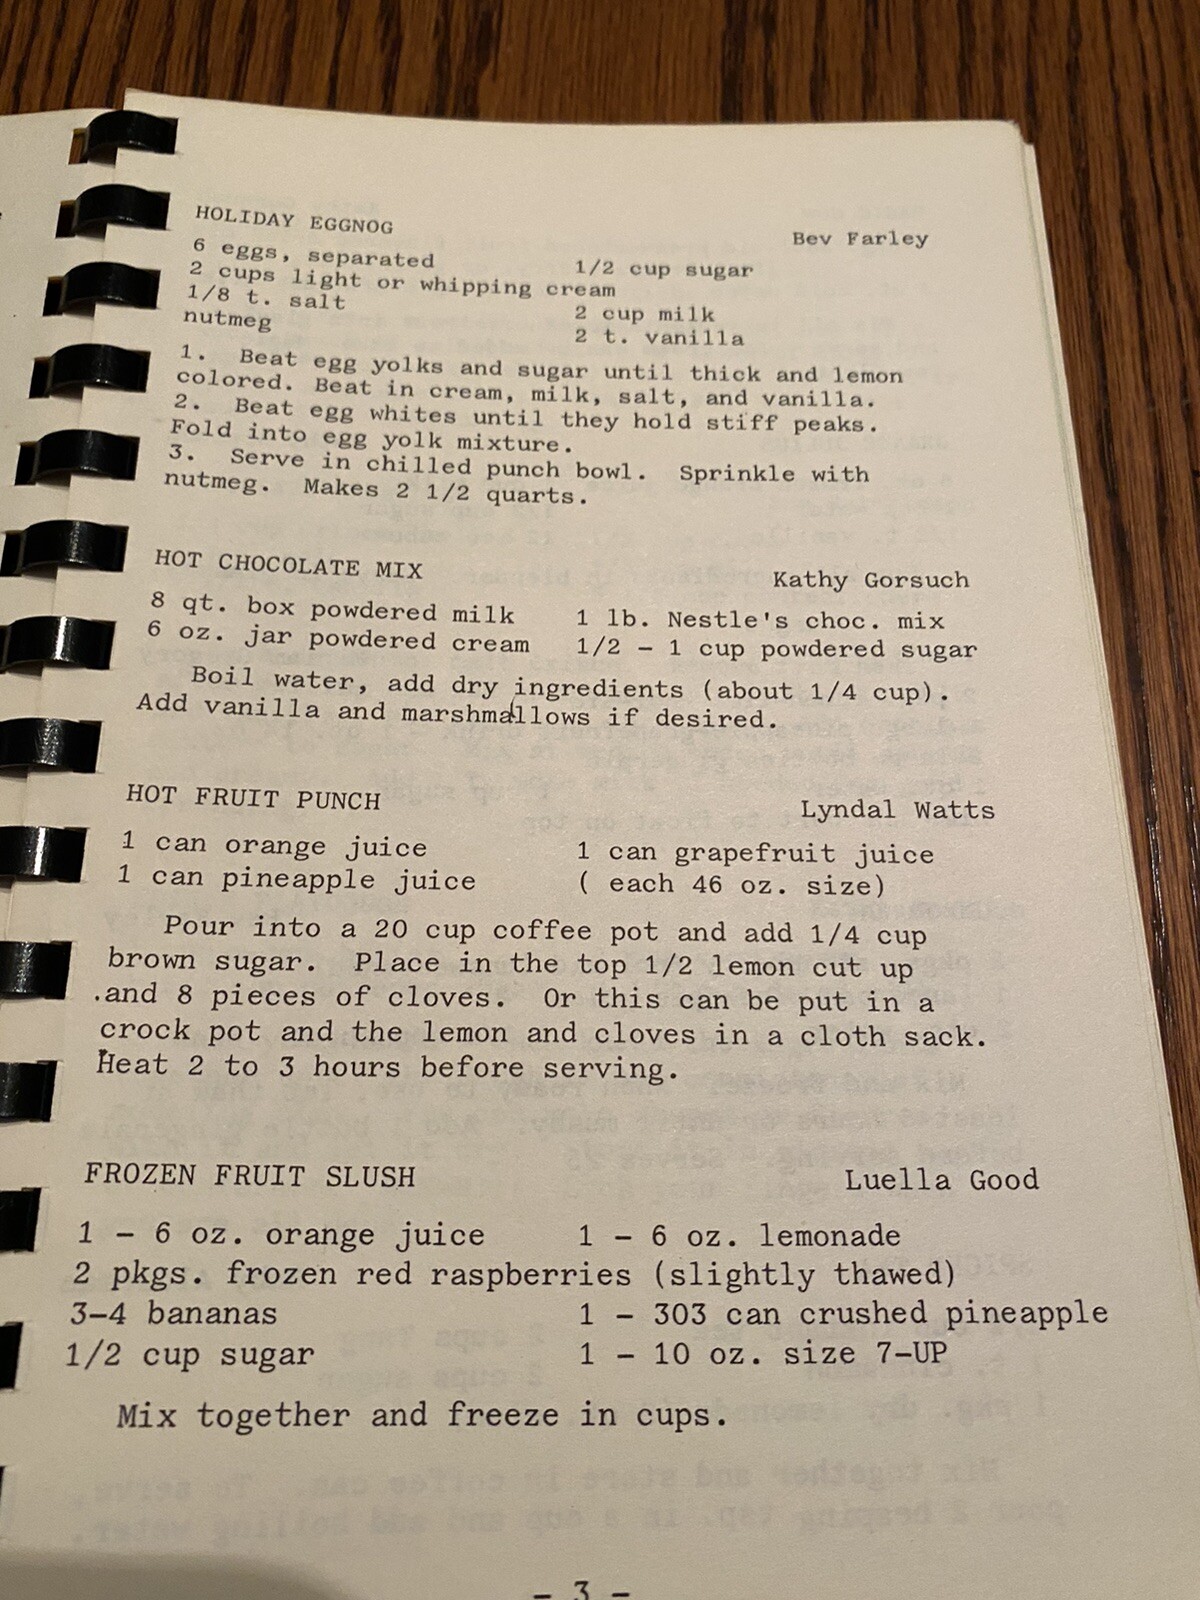 HOLIDAY EGGNOG Bev Farley
6 eggs, separated 1/2 cup sugar
2 cups light or whipping cream
1/8 t. salt 2 cup milk
nutmeg 2 t. vanilla
1. Beat egg yolks and sugar until thick and lemon
colored. Beat in cream, milk, salt, and vanilla.
2. Beat egg whites until they hold stiff peaks.
Fold into egg yolk mixture.
3. Serve in chilled punch bowl. Sprinkle with
nutmeg. Makes 2 1/2 quarts.
HOT CHOCOLATE MIX Kathy Gorsuch
8 qt. box powdered milk 1 lb. Nestle's choc. mix
6 oz. jar powdered cream 1/2 - 1 cup powdered sugar
Boil water, add dry ingredients (about 1/4 cup).
Add vanilla and marshmallows if desired.
HOT FRUIT PUNCH Lyndal Watts
1 can orange juice 1 can grapefruit juice
1 can pineapple juice ( each 46 oz. size)
Pour into a 20 cup coffee pot and add 1/4 cup
brown sugar. Place in the top 1/2 lemon cut up
.and 8 pieces of cloves. Or this can be put in a
crock pot and the lemon and cloves in a cloth sack.
Heat 2 to 3 hours before serving.
FROZEN FRUIT SLUSH Luella Good
1 - 6 oz. orange juice 1 - 6 oz. lemonade
2 pkgs. frozen red raspberries (slightly thawed)
3-4 bananas 1 - 303 can crushed pineapple
1/2 cup sugar 1 - 10 oz. size 7-UP
Mix together and freeze in cups.
- 3 -